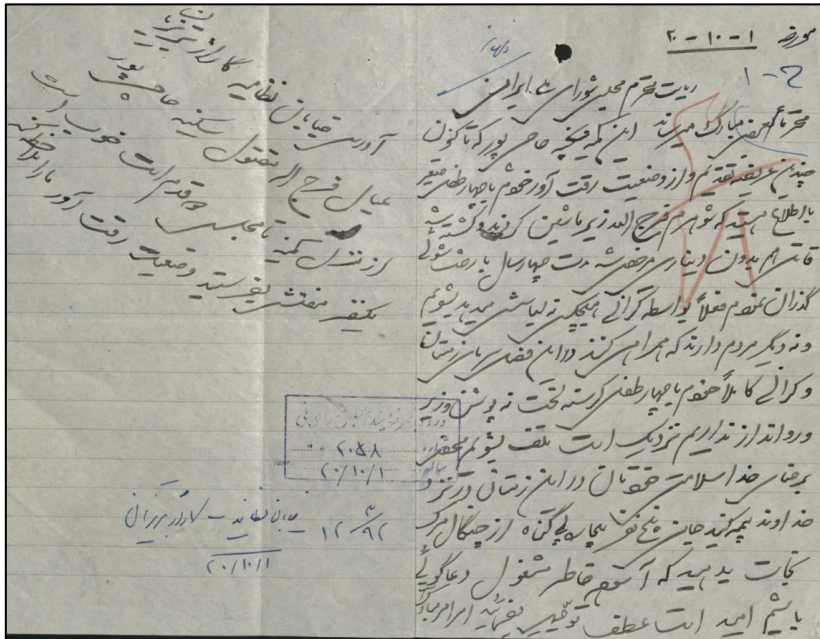 مورخه ۱-۱۰-۲۰
ریاست محترم مجلس شورای ملی ایران
محترماً بعرض مبارک میرساند این کمینه حاجی پور که تاکنون
چندین عریضه تقدیم و از وضعیت رقت آور خودم با چهار طفل صغیر
با اطلاع هستید که شوهرم فرج الله زیر ماشین کردند و کشته شد
قاتل هم بدون دیناری مرخص شد مدت چهار سال با رخت شوئی
گذران نمودم فعلاً بواسطه گرانی هیچکس نه لباسش میدهد بشویم
و نه دیگر مردم دارند که همراهی کنند در این فصل زمستان
و گرانی کاملاً خودم با چهار طفل گرسنه لخت نه پوشش و زیر
و روانداز نداریم نزدیک است تلف بشویم محض
رضای خدا سلامتی خودتان در این زمستان در نزد
خداوند بیمه کنید جان پنج نفر بیچاره بی گناه از چنگال مرگ
نجات بدهید که آسوده خاطر مشغول دعاگوئی
باشیم امید است عطف توجهی بفرمائید امر امر مبارک
آدرس خیابان نظامیه گاراژ برزیان
عیال فرج الله مقتول سکینه حاجی پور
از منزل کمینه تا مجلس قدم است خوب است
یکنفر مفتش بفرستید وضعیت رقت آور ما را ملاحظه کند
۲۰۵۸
۲۰/۱۰/۱
۱۲ ۳/۹۲
خیابان نظامیه - گاراژ برزیان
۲۰/۱۰/۱